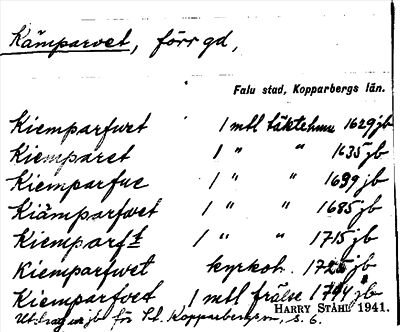 Kämparvet, förr gd,
Falu stad, Kopparbergs län.
Kiemparfuet 1 mtl täktehmn 1629 jb
Kiemparet 1 " " 1635 jb
Kiemparfue 1 " " 1699 jb
Kiämparfwet 1 " " 1685 jb
Kiemparft 1 " " 1715 jb
Kiemparfwet kyrkoh. jb
Kiemparfvet 1 mtl frälse 1744 jb
HARRY STÅHL 1941.
Utdrag ur jb för St. Kopparbergsn, s. 6.